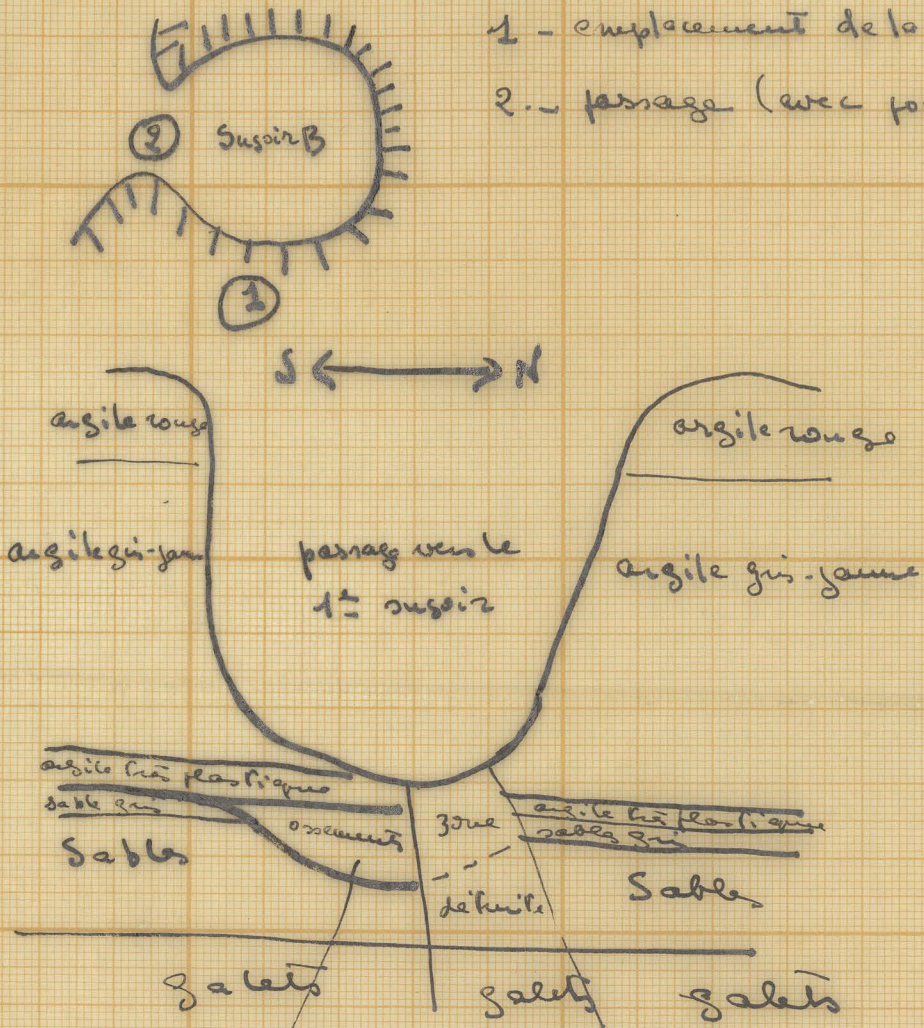 1 - emplacement de la
2.- passage (avec
2
Suçoir B
1
S N
argile rouge
argile rouge
argile gris-jaune
passage vers le
1er suçoir
argile gris-jaune
argile très plastique
sable gris
ossements
zone
argile très plastique
sables gris
Sables
détruite
Sables
galets
galets
galets